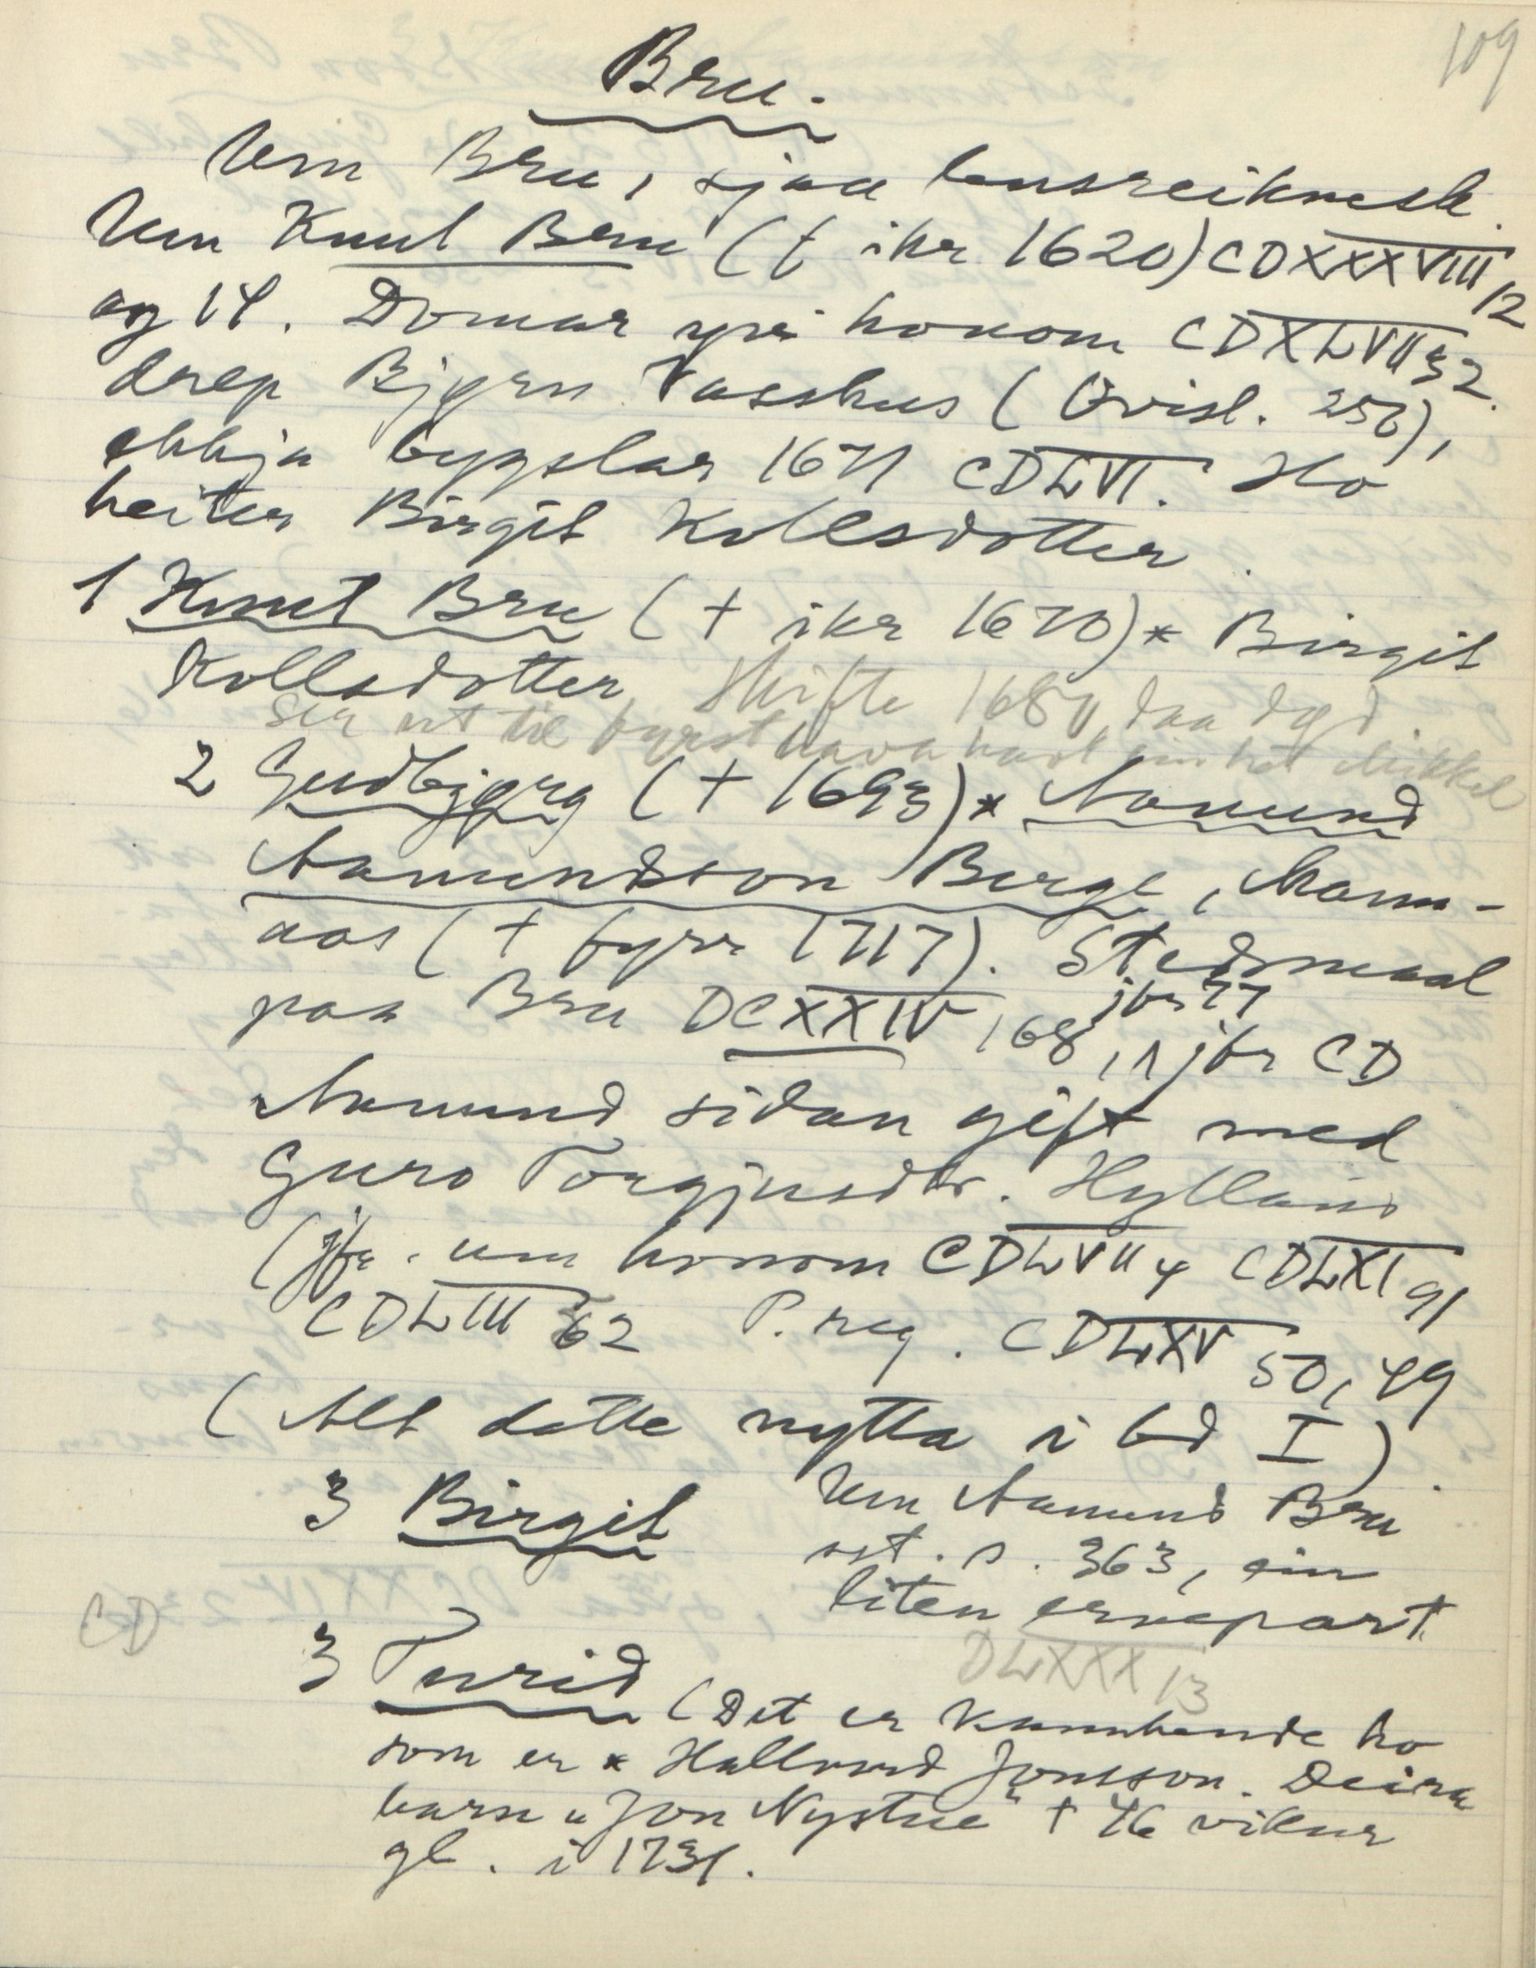 109
Bru.
Um Bru, sjaa lensreiknesk.
Um Knut Bru († ikr 1620) CDXXXVIII 12
og 14. Domar yvi honom CDXLVII 32.
drep Bjørn Vasshus (Øvisl. 256),
ekkja bygslar 1671 CDLVI. Ho
heiter Birgit Kollsdotter.
1 Knut Bru († ikr 1670) * Birgit
Kollsdotter Skifte 1680, daa død
Ser ut til fyrst hava havt ein het Mikkel
2 Gudbjørg († 1693) * Aamund
Aamundson Berge, Mann-
aas († fyrr 1717). Stedsmaal
paa Bru DCXXIV 168, 1 jfr CD
jfr 77
Aamund sidan gift med
Guro Torgjusdtr. Hylland
(jfr. um honom CDLVII 4 CDLXI 91
CDLIII 62 P. reg. CDLXV 50, 49
(Alt dette nytta i bd I)
3 Birgit
Um Aamund Bru
ost. s. 363, ein
liten ervepart.
DLXXX 13
CD
3 Turid (Det er kannhende ho
som er * Hallvard Jonsson. Deira
barn "Jon Nystue" † 46 vikur
gl. i 1731.